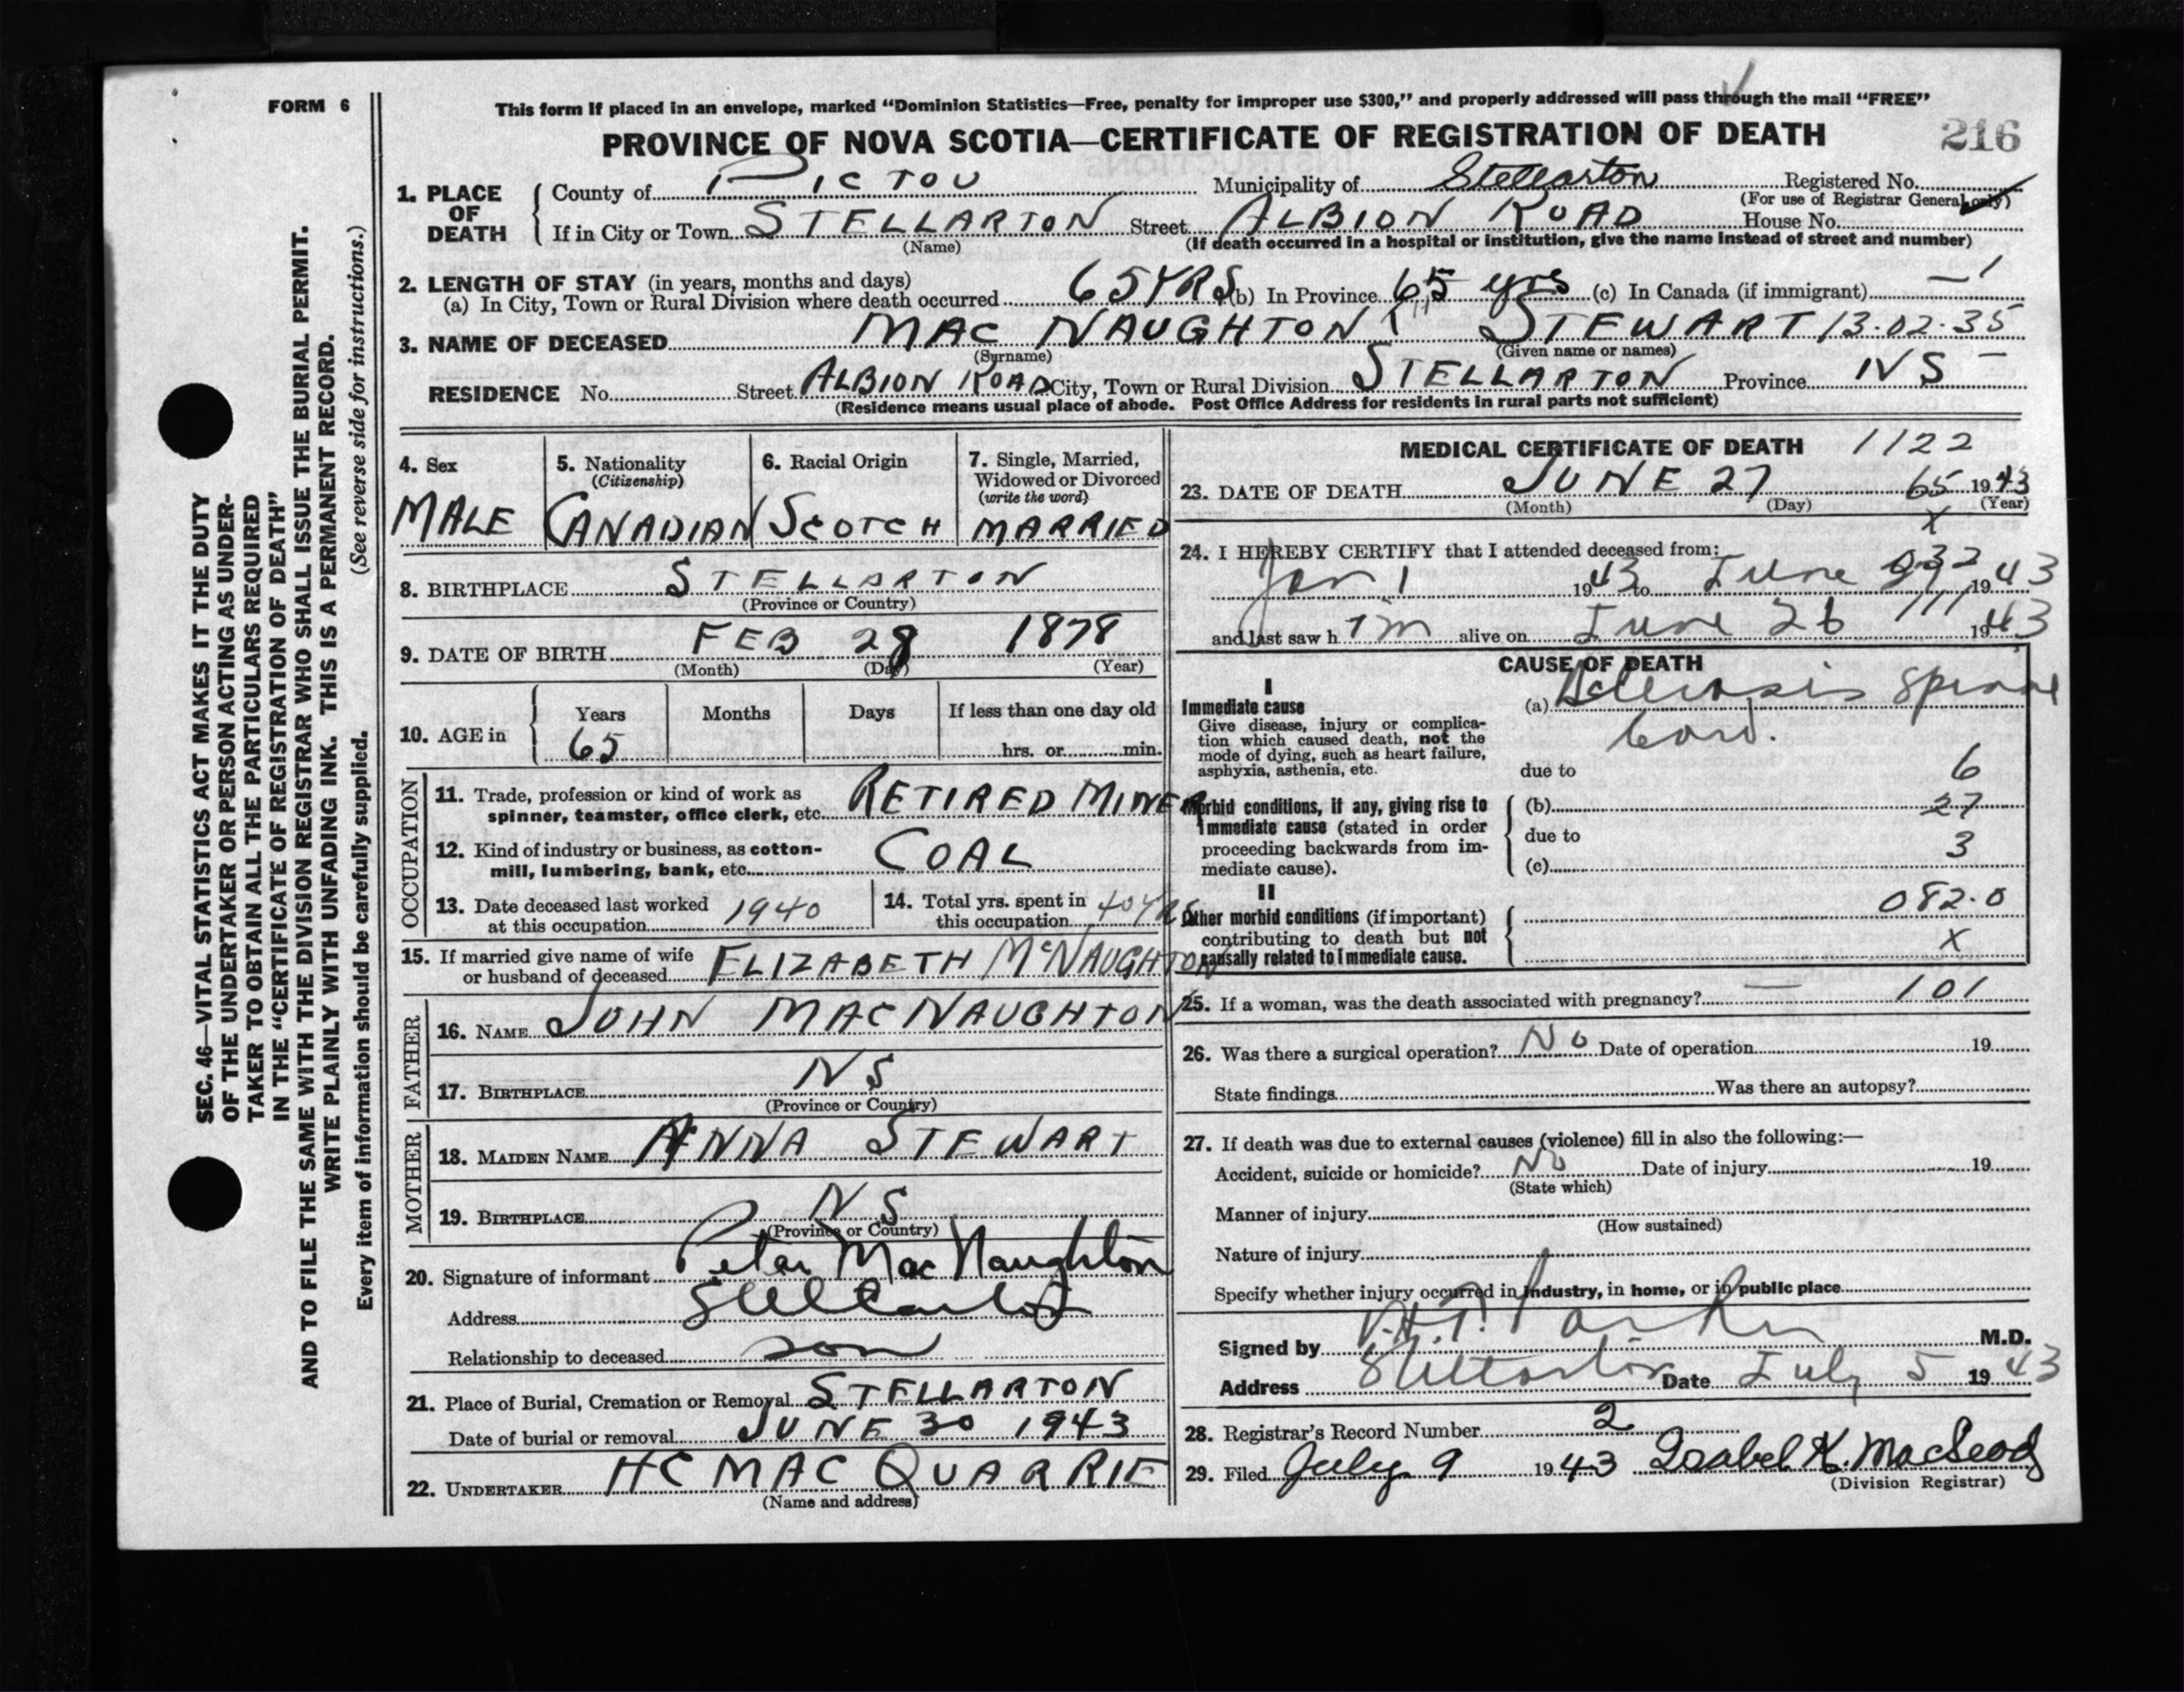 FORM 6
This form if placed in an envelope, marked “Dominion Statistics—Free, penalty for improper use $300,” and properly addressed will pass through the mail “FREE”
PROVINCE OF NOVA SCOTIA—CERTIFICATE OF REGISTRATION OF DEATH
216
1. PLACE OF DEATH
County of PICTOU Municipality of Stellarton Registered No.
(For use of Registrar General only)
If in City or Town STELLARTON Street ALBION ROAD House No.
(Name) (If death occurred in a hospital or institution, give the name instead of street and number)
2. LENGTH OF STAY (in years, months and days)
(a) In City, Town or Rural Division where death occurred 65 YRS (b) In Province 65 yrs (c) In Canada (if immigrant) — 1
3. NAME OF DECEASED MAC NAUGHTON STEWART 13-02-35
(Surname) (Given name or names)
RESIDENCE No. Street ALBION ROAD City, Town or Rural Division STELLARTON Province NS —
(Residence means usual place of abode. Post Office Address for residents in rural parts not sufficient)
4. Sex
MALE
5. Nationality
(Citizenship)
CANADIAN
6. Racial Origin
SCOTCH
7. Single, Married,
Widowed or Divorced
(write the word)
MARRIED
8. BIRTHPLACE STELLARTON
(Province or Country)
9. DATE OF BIRTH FEB 28 1878
(Month) (Day) (Year)
10. AGE in
Years Months Days If less than one day old
65 hrs. or min.
OCCUPATION
11. Trade, profession or kind of work as
spinner, teamster, office clerk, etc. RETIRED MINER
12. Kind of industry or business, as cotton-
mill, lumbering, bank, etc. COAL
13. Date deceased last worked
at this occupation 1940
14. Total yrs. spent in
this occupation 40 YRS
15. If married give name of wife
or husband of deceased ELIZABETH McNAUGHTON
FATHER
16. NAME JOHN MACNAUGHTON
17. BIRTHPLACE NS
(Province or Country)
MOTHER
18. MAIDEN NAME ANNA STEWART
19. BIRTHPLACE NS
(Province or Country)
20. Signature of informant Peter MacNaughton
Address Stellarton
Relationship to deceased son
21. Place of Burial, Cremation or Removal STELLARTON
Date of burial or removal JUNE 30 1943
22. UNDERTAKER HC MAC QUARRIE
(Name and address)
MEDICAL CERTIFICATE OF DEATH 1122
23. DATE OF DEATH JUNE 27 65 1943
(Month) (Day) (Year)
X
24. I HEREBY CERTIFY that I attended deceased from:
Jan 1 1943 to June 1943
and last saw him alive on June 26 1943
CAUSE OF DEATH
I
Immediate cause
Give disease, injury or complica-
tion which caused death, not the
mode of dying, such as heart failure,
asphyxia, asthenia, etc.
(a) Sclerosis Spinal
Cord.
due to 6
Morbid conditions, if any, giving rise to
immediate cause (stated in order
proceeding backwards from im-
mediate cause).
(b) 27
due to
(c) 3
II
Other morbid conditions (if important)
contributing to death but not
causally related to immediate cause.
082.0
X
25. If a woman, was the death associated with pregnancy? — 101
26. Was there a surgical operation? No Date of operation 19
State findings Was there an autopsy?
27. If death was due to external causes (violence) fill in also the following:—
Accident, suicide or homicide? No Date of injury 19
(State which)
Manner of injury
(How sustained)
Nature of injury
Specify whether injury occurred in industry, in home, or in public place
Signed by Parker M.D.
Address Stellarton Date July 5 1943
28. Registrar's Record Number 2
29. Filed July 9 1943 Isabel K. MacLeod
(Division Registrar)
SEC. 46—VITAL STATISTICS ACT MAKES IT THE DUTY
OF THE UNDERTAKER OR PERSON ACTING AS UNDER-
TAKER TO OBTAIN ALL THE PARTICULARS REQUIRED
IN THE “CERTIFICATE OF REGISTRATION OF DEATH”
AND TO FILE THE SAME WITH THE DIVISION REGISTRAR WHO SHALL ISSUE THE BURIAL PERMIT.
WRITE PLAINLY WITH UNFADING INK. THIS IS A PERMANENT RECORD.
Every item of information should be carefully supplied. (See reverse side for instructions.)